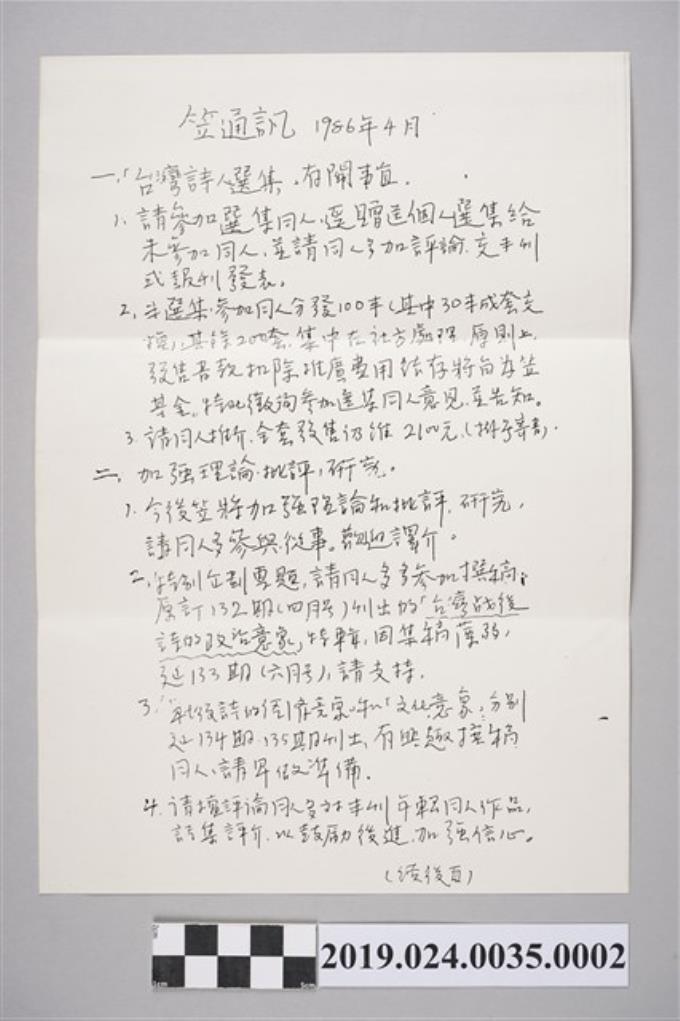 笠通訊 1986年4月
一、「台灣詩人選集」有關事宜.
1. 請參加選集同人、逕贈送個人選集給
未參加同人、並請同人多加評論、交本刊
或報刊發表。
2. 選集、參加同人分發100本(其中30本成套交
換),其餘200套、集中在社方處理、原則上、
發售書款扣除推廣費用結存將自為笠
基金。特此徵詢參加選集同人意見、並告知。
3. 請同人推介、全套發售仍維 2100元.(掛號寄書).
二、加強理論、批評、研究。
1. 今後笠將加強理論和批評、研究,
請同人多參與、從事。歡迎譯介。
2. 特別企劃專題,請同人多多參加撰稿;
原訂132期(四月号)刊出的「台灣战後
詩的政治意象」特輯,因集稿薄弱,
延133期(六月号),請支持.
3. 「文化意象」分別
延134期、135期刊出、有興趣撰稿
同人、請早做準備.
4. 请擅評論同人多对本刊年輕同人作品,
詩集評介、以鼓励後進、加强信心。
(续後頁)
2019.024.0035.0002